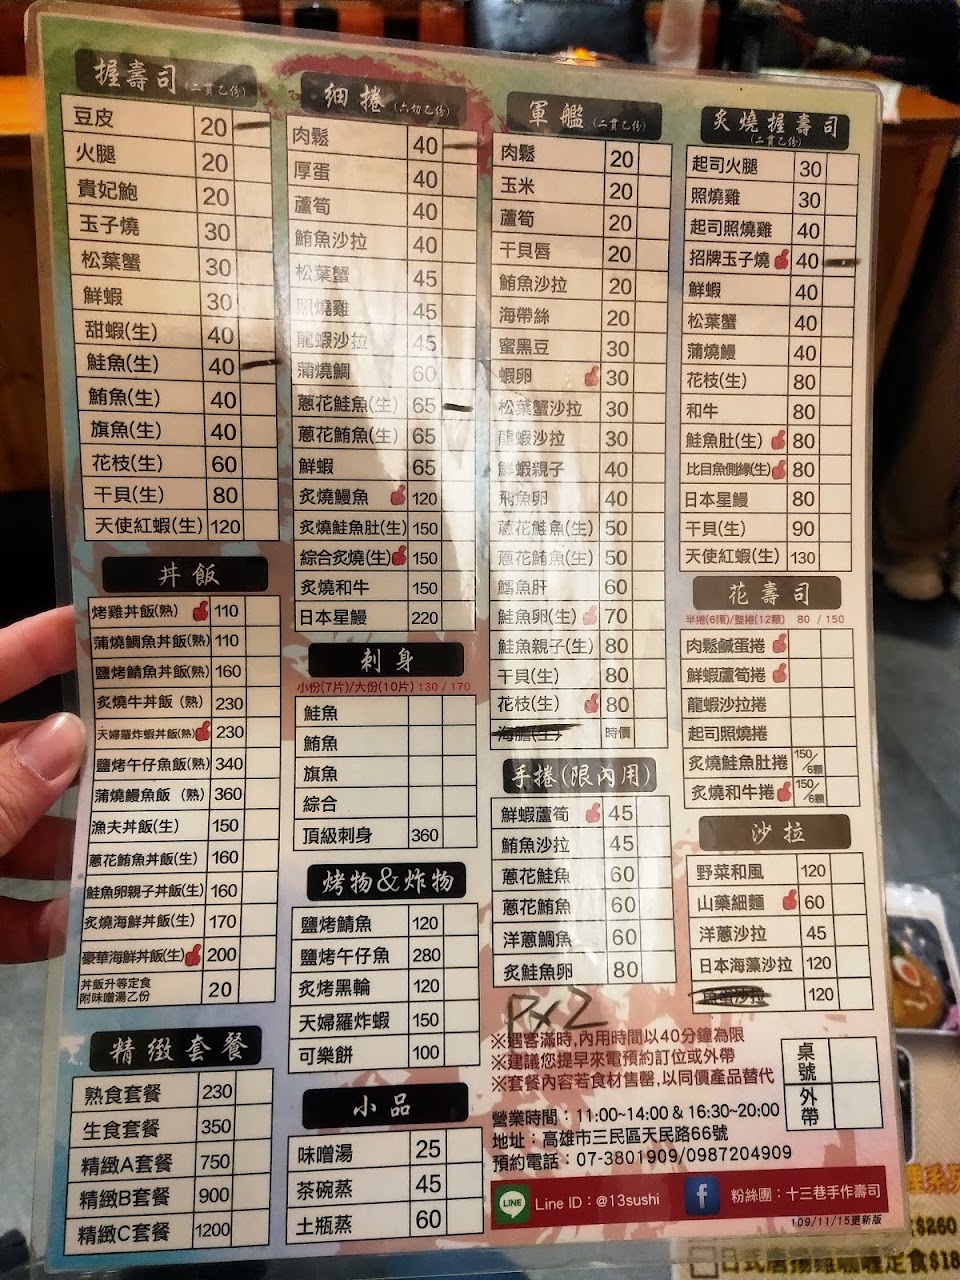 握壽司(二貫乙份)
豆皮 20
火腿 20
貴妃鮑 20
玉子燒 30
松葉蟹 30
鮮蝦 30
甜蝦(生) 40
鮭魚(生) 40
鮪魚(生) 40
旗魚(生) 40
花枝(生) 60
干貝(生) 80
天使紅蝦(生) 120
丼飯
烤雞丼飯(熟) 110
蒲燒鯛魚丼飯(熟) 110
鹽烤鯖魚丼飯(熟) 160
炙燒牛丼飯(熟) 230
天婦羅炸蝦丼飯(熟) 230
鹽烤午仔魚飯(熟) 340
蒲燒鰻魚飯(熟) 360
漁夫丼飯(生) 150
蔥花鮪魚丼飯(生) 160
鮭魚卵親子丼飯(生) 160
炙燒海鮮丼飯(生) 170
豪華海鮮丼飯(生) 200
丼飯升等定食
附味噌湯乙份 20
精緻套餐
熟食套餐 230
生食套餐 350
精緻A套餐 750
精緻B套餐 900
精緻C套餐 1200
細捲(六切乙份)
肉鬆 40
厚蛋 40
蘆筍 40
鮪魚沙拉 40
松葉蟹 45
照燒雞 45
龍蝦沙拉 45
蒲燒鯛 60
蔥花鮭魚(生) 65
蔥花鮪魚(生) 65
鮮蝦 65
炙燒鰻魚 120
炙燒鮭魚肚(生) 150
綜合炙燒(生) 150
炙燒和牛 150
日本星鰻 220
刺身
小份(7片)/大份(10片) 130 / 170
鮭魚
鮪魚
旗魚
綜合
頂級刺身 360
烤物&炸物
鹽烤鯖魚 120
鹽烤午仔魚 280
炙烤黑輪 120
天婦羅炸蝦 150
可樂餅 100
小品
味噌湯 25
茶碗蒸 45
土瓶蒸 60
軍艦(二貫乙份)
肉鬆 20
玉米 20
蘆筍 20
干貝唇 20
鮪魚沙拉 20
海帶絲 20
蜜黑豆 30
蝦卵 30
松葉蟹沙拉 30
龍蝦沙拉 30
鮮蝦親子 40
飛魚卵 40
蔥花鮭魚(生) 50
蔥花鮪魚(生) 50
鱈魚肝 60
鮭魚卵(生) 70
鮭魚親子(生) 80
干貝(生) 80
花枝(生) 80
海膽(生) 時價
手捲(限內用)
鮮蝦蘆筍 45
鮪魚沙拉 45
蔥花鮭魚 60
蔥花鮪魚 60
洋蔥鯛魚 60
炙鮭魚卵 80
炙燒握壽司
(二貫乙份)
起司火腿 30
照燒雞 30
起司照燒雞 40
招牌玉子燒 40
鮮蝦 40
松葉蟹 40
蒲燒鰻 40
花枝(生) 80
和牛 80
鮭魚肚(生) 80
比目魚側緣(生) 80
日本星鰻 80
干貝(生) 90
天使紅蝦(生) 130
花壽司
半捲(6顆)/整捲(12顆) 80 / 150
肉鬆鹹蛋捲
鮮蝦蘆筍捲
龍蝦沙拉捲
起司照燒捲
炙燒鮭魚肚捲 150/6顆
炙燒和牛捲 150/6顆
沙拉
野菜和風 120
山藥細麵 60
洋蔥沙拉 45
日本海藻沙拉 120
沙拉 120
※遇客滿時,內用時間以40分鐘為限
※建議您提早來電預約訂位或外帶
※套餐內容若食材售罄,以同價產品替代
桌號
外帶
營業時間：11:00~14:00 & 16:30~20:00
地址：高雄市三民區天民路66號
預約電話：07-3801909/0987204909
LINE Line ID：@13sushi f 粉絲團：十三巷手作壽司
109/11/15更新版
$260
日式唐揚雞咖哩定食$18